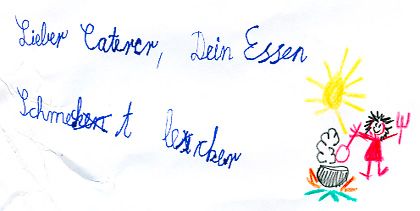 Lieber Caterer, Dein Essen
Schmeckt lecker